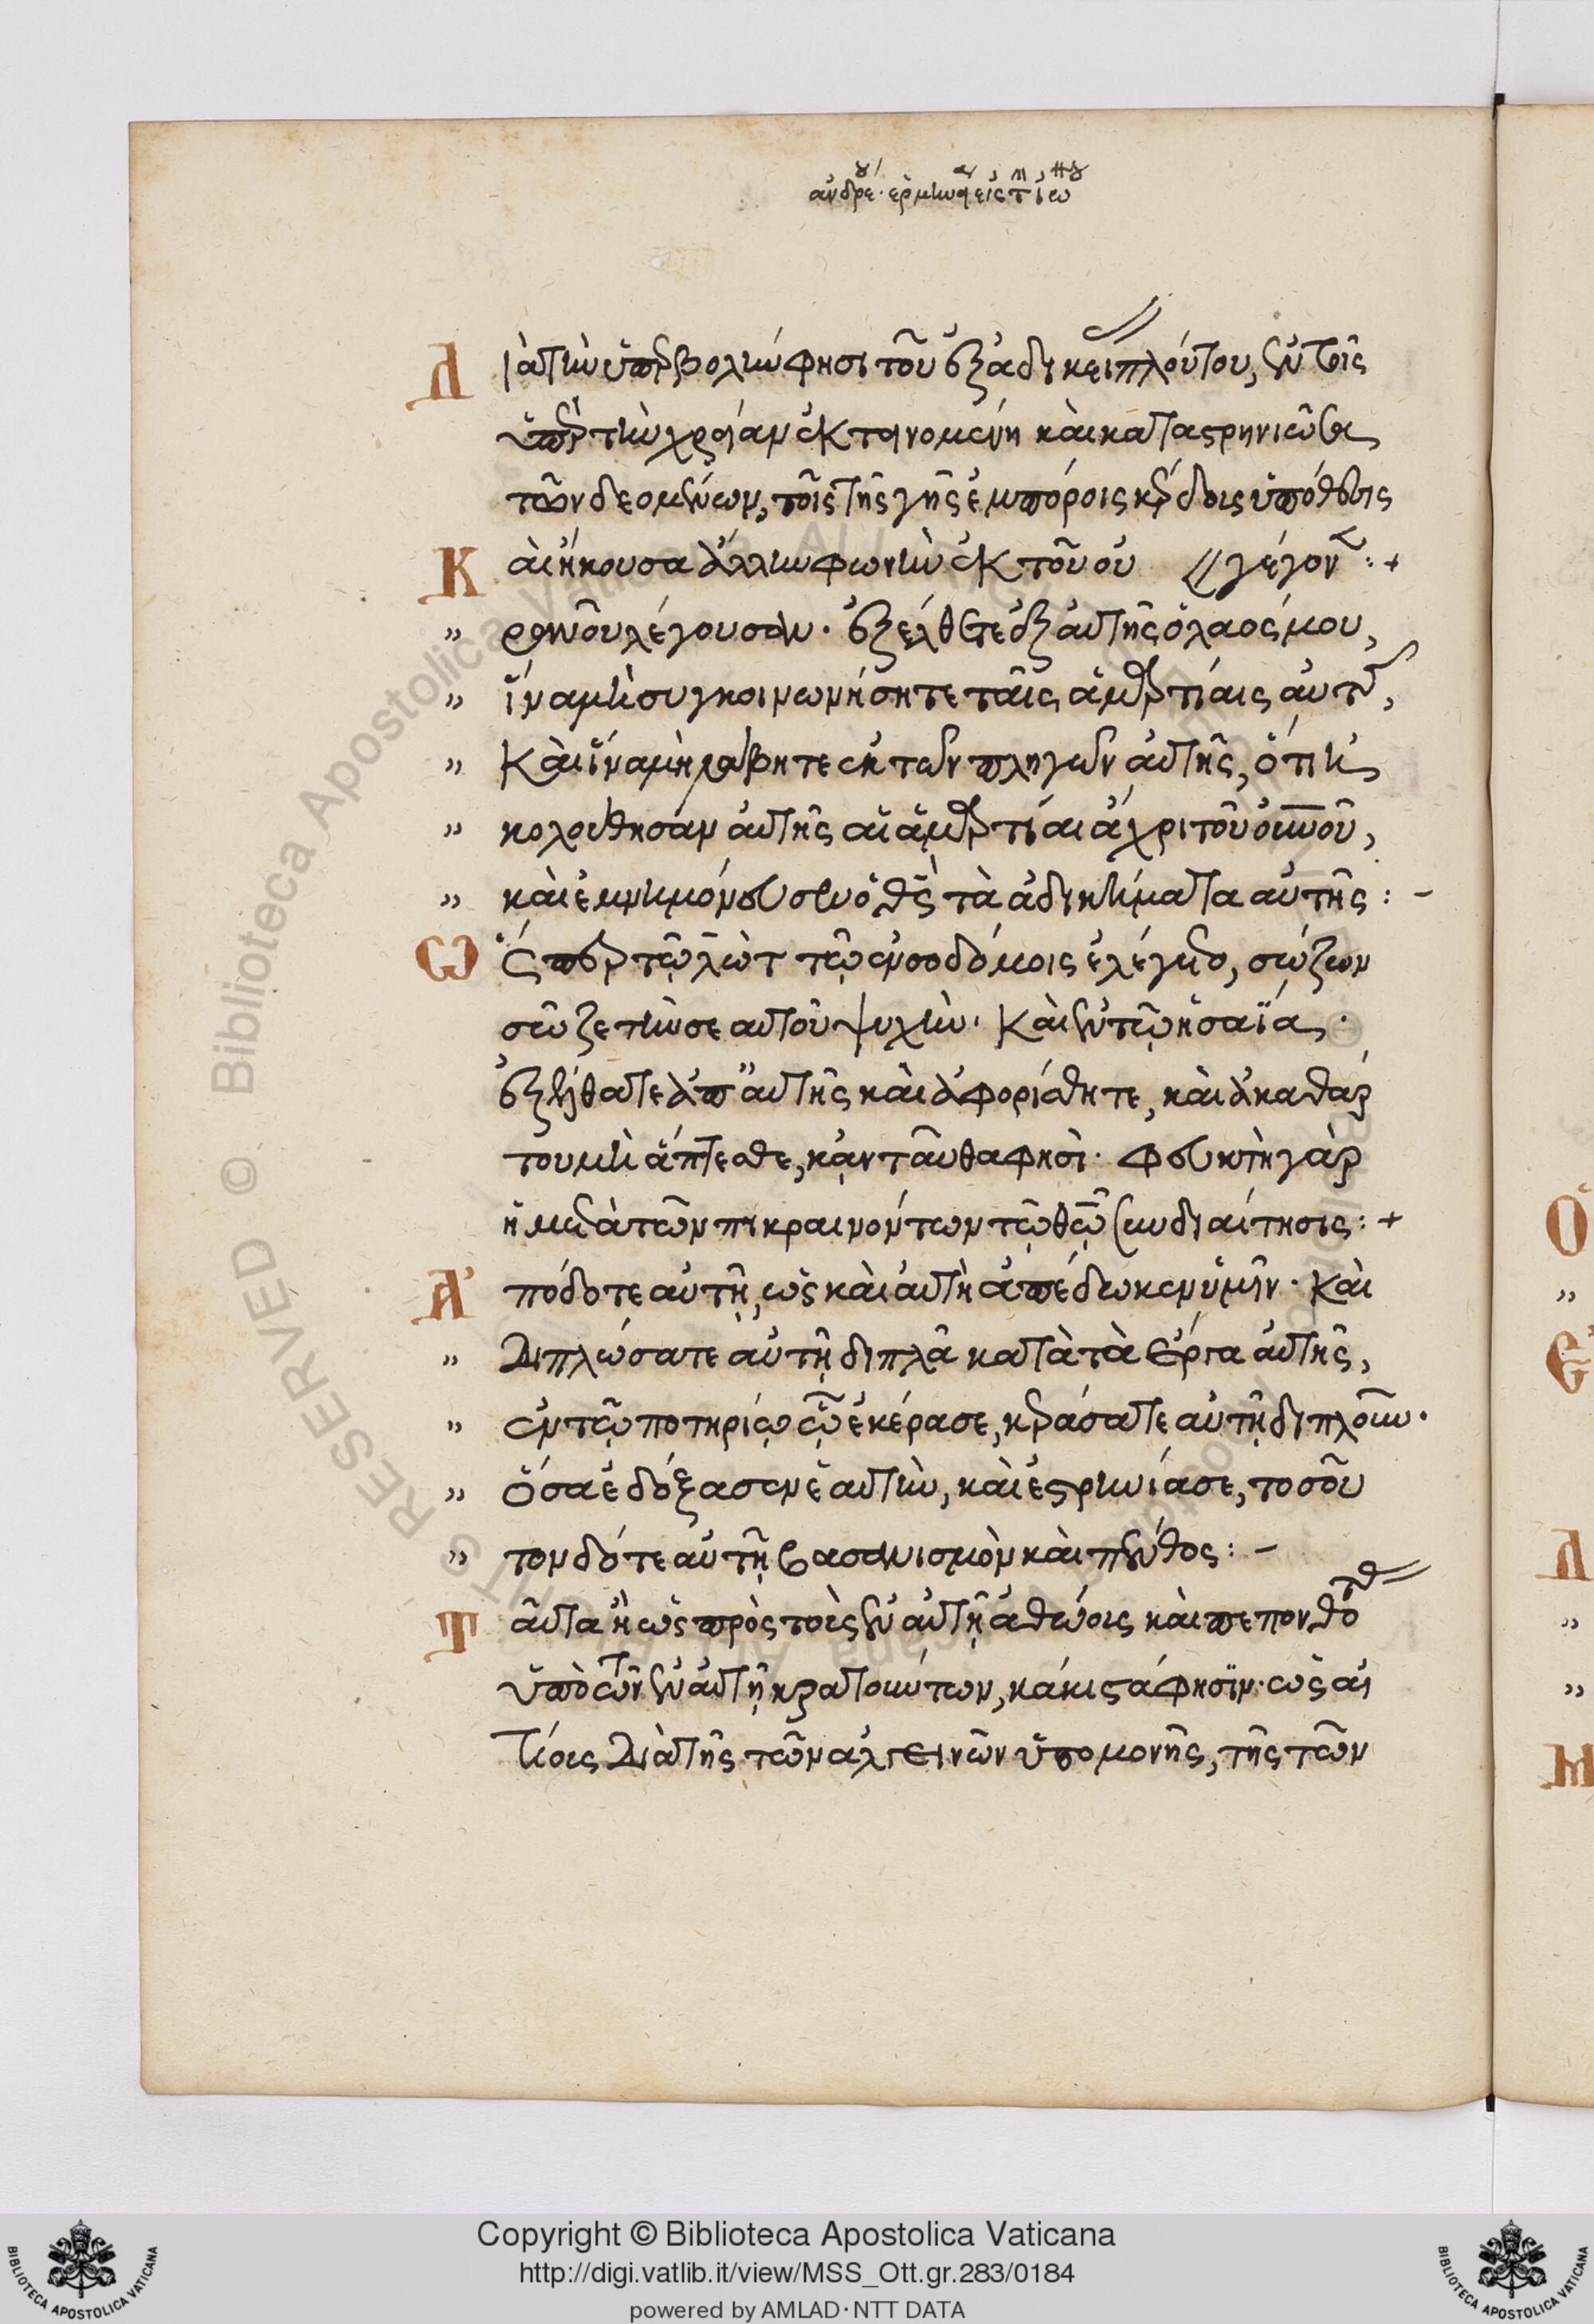 Διὰ τὴν ὑπερβολὴν φησὶ τοῦ ἐξ ἀδικίας πλούτου, ἐν τοῖς
ὑπὲρ τὴν χρείαν ἐκτεινομένη καὶ καταστρηνιῶσα
τῶν δεομένων, τοῖς τῆς γῆς ἐμπόροις κέρδους ὑπόθεσις
Καὶ ἤκουσα ἄλλην φωνὴν ἐκ τοῦ οὐ // γέγονε :+
" ρανοῦ λέγουσαν· ἐξέλθετε ἐξ αὐτῆς ὁ λαός μου,
" ἵνα μὴ συγκοινωνήσητε ταῖς ἁμαρτίαις αὐτῆς,
" Καὶ ἵνα μὴ λάβητε ἐκ τῶν πληγῶν αὐτῆς, ὅτι ἠ
" κολούθησαν αὐτῆς αἱ ἁμαρτίαι ἄχρι τοῦ οὐνοῦ,
" καὶ ἐμνημόνευσεν ὁ θς τὰ ἀδικήματα αὐτῆς :-
Ὥσπερ τῷ λὼτ τῷ ἐν σοδόμοις ἐλέγετο, σώζων
σῶζε τὴν σεαυτοῦ ψυχήν· Καὶ ἐν τῷ ἡσαΐᾳ·
ἐξέλθατε ἀπ' αὐτῆς καὶ ἀφορίσθητε, καὶ ἀκαθάρ
του μὴ ἅπτεσθε, κἀνταῦθα φησί· φευκτὴ γὰρ
ἡ μετὰ τῶν πικραινόντων τῷ θῷ συνδιαίτησις :+
Ἀπόδοτε αὐτῇ, ὡς καὶ αὐτὴ ἀπέδωκεν ὑμῖν· Καὶ
" Διπλώσατε αὐτῇ διπλᾶ κατὰ τὰ ἔργα αὐτῆς,
" ἐν τῷ ποτηρίῳ ᾧ ἐκέρασε, κεράσατε αὐτῇ διπλοῦν·
" ὅσα ἐδόξασεν ἑαυτὴν, καὶ ἐστρηνίασε, τοσοῦ
" τον δότε αὐτῇ βασανισμὸν καὶ πένθος :-
Ταῦτα ἢ ὡς πρὸς τοὺς ἐν αὐτῇ ἀθώους καὶ πεπονθότας
ὑπὸ τῶν ἐν αὐτῇ κρατούντων, κάκιστά φησιν· ὡς αἰ
τίοις Διὰ τῆς τῶν ἀλγεινῶν ὑπομονῆς, τῆς τῶν
Copyright © Biblioteca Apostolica Vaticana
http://digi.vatlib.it/view/MSS_Ott.gr.283/0184
powered by AMLAD·NTT DATA